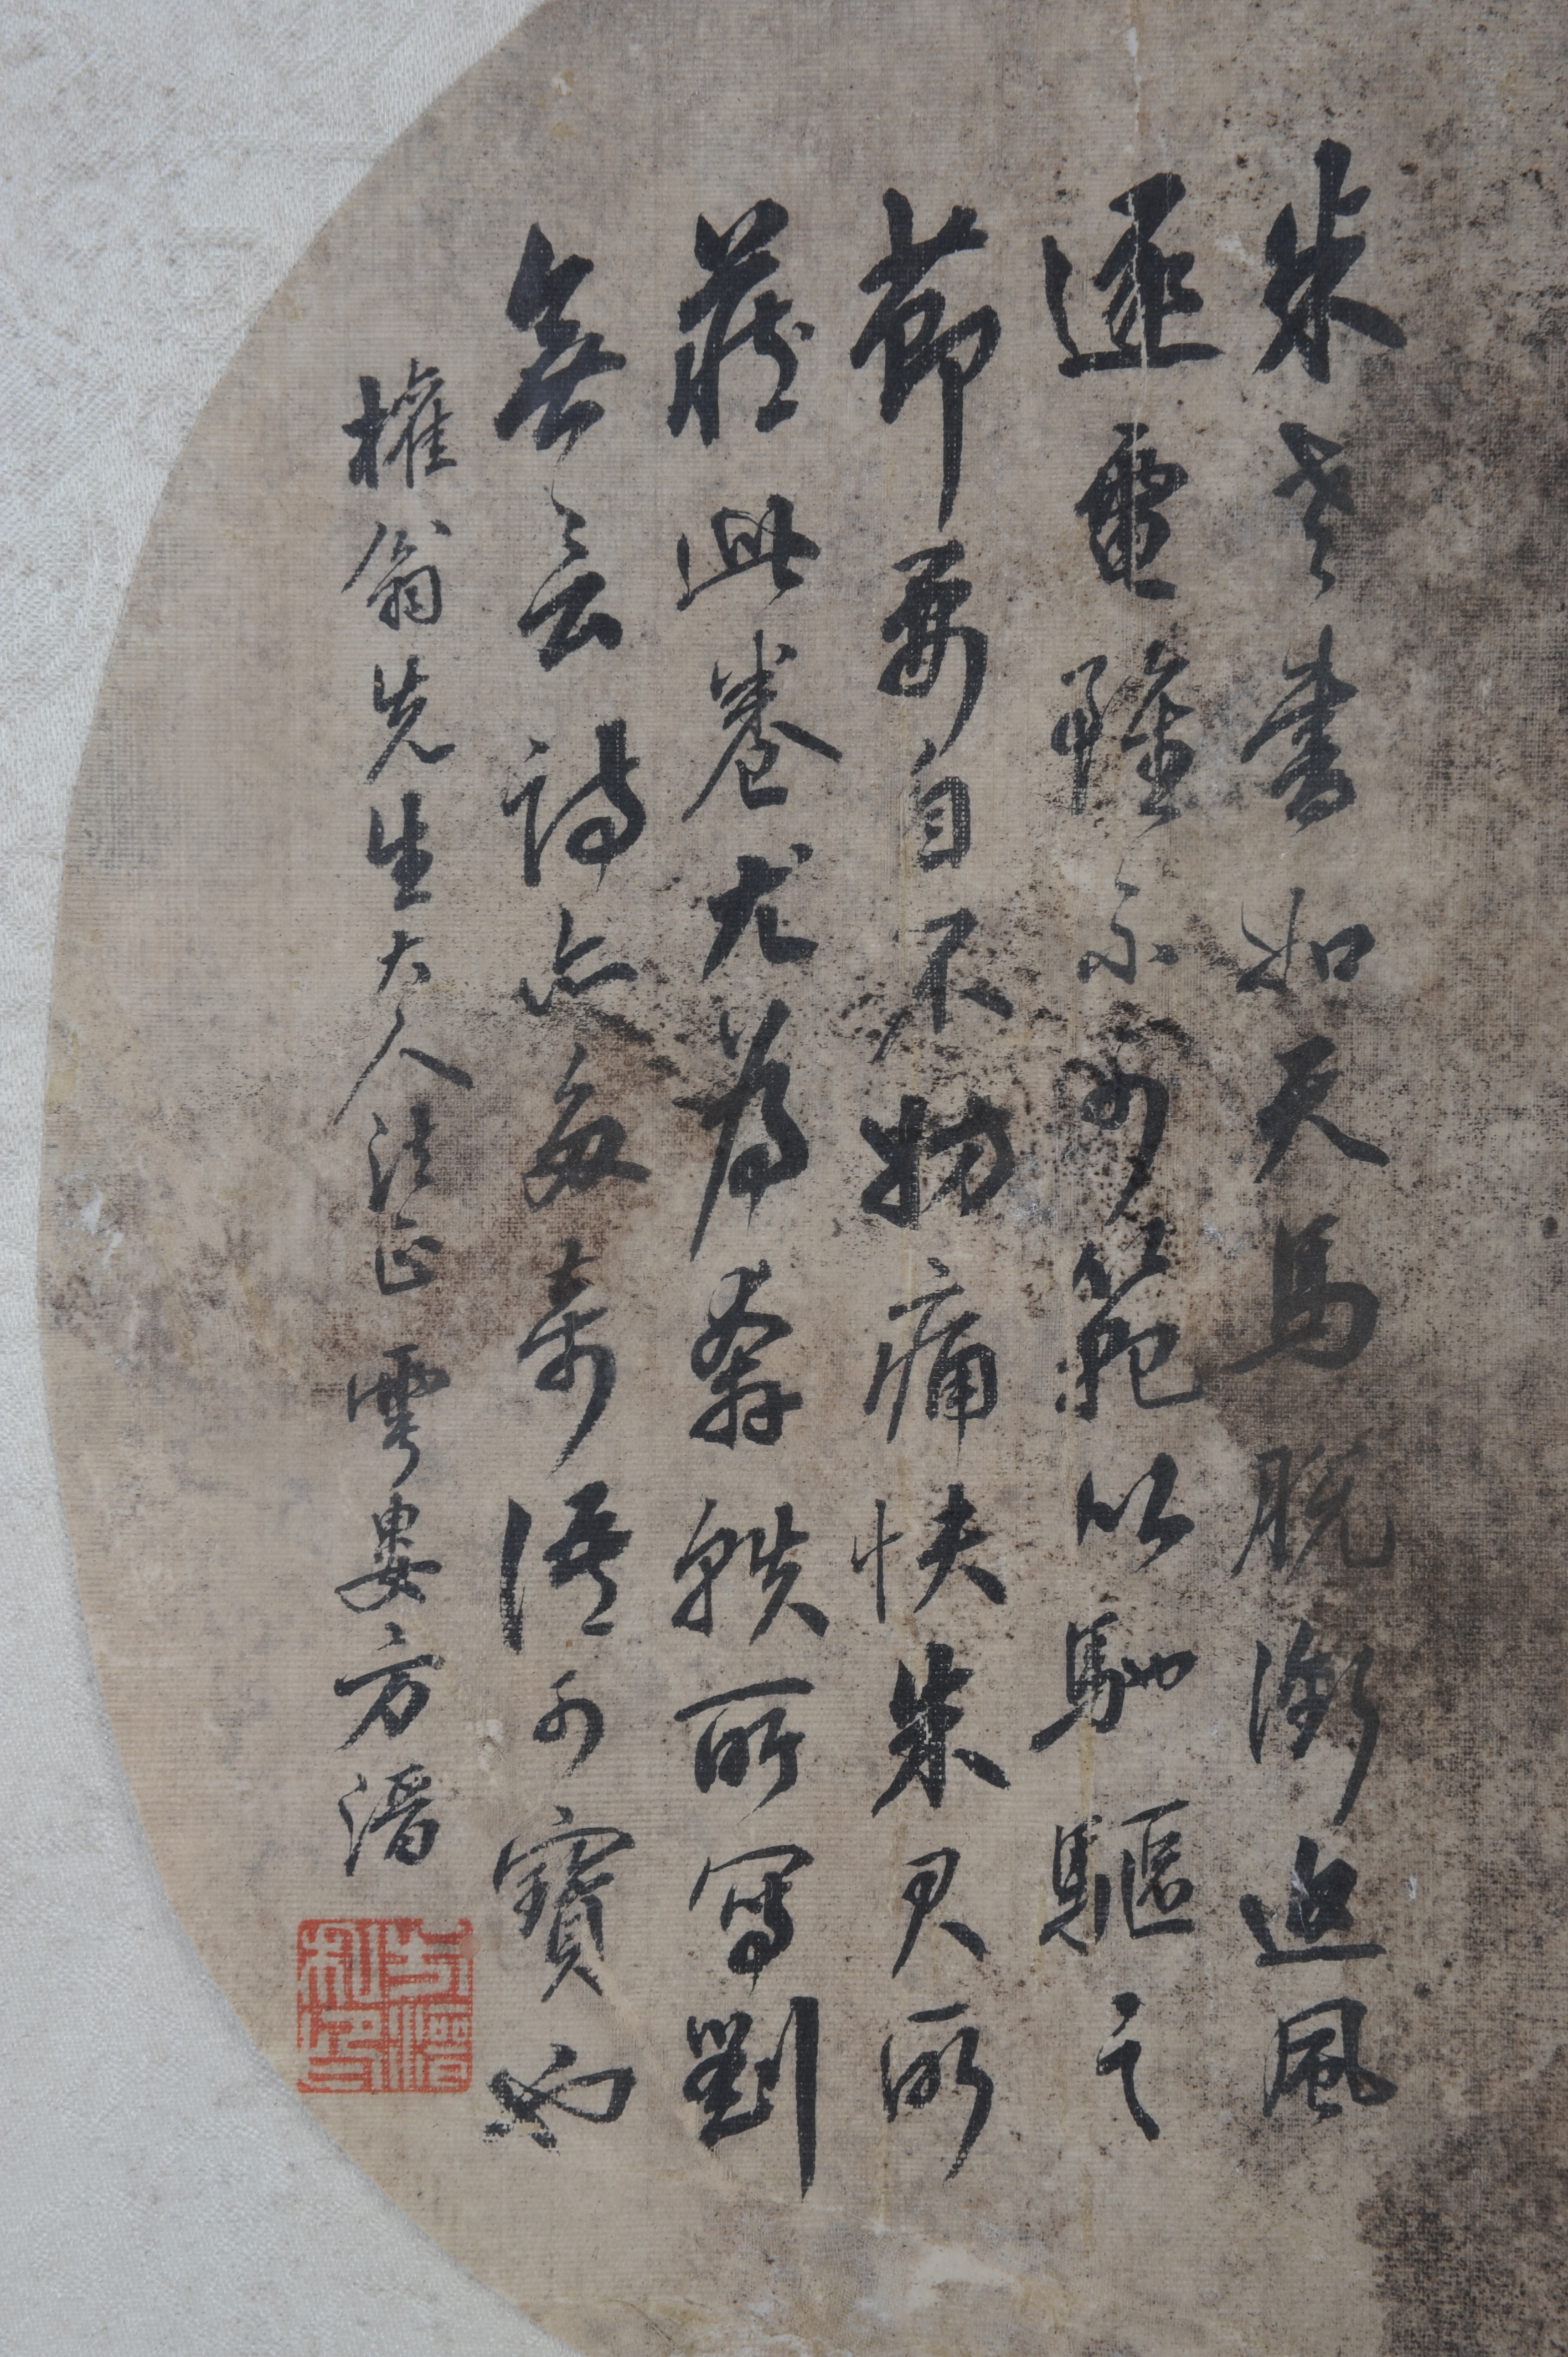 米老書如天馬脫銜追風
逐電雖不可範以馳驅之
節要自不妨痛快朱君所
藏此卷尤為奔軼所寫劉
無言詩亦多奇語可寶也
權翁先生大人法正 雲婁方濬
方濬私印